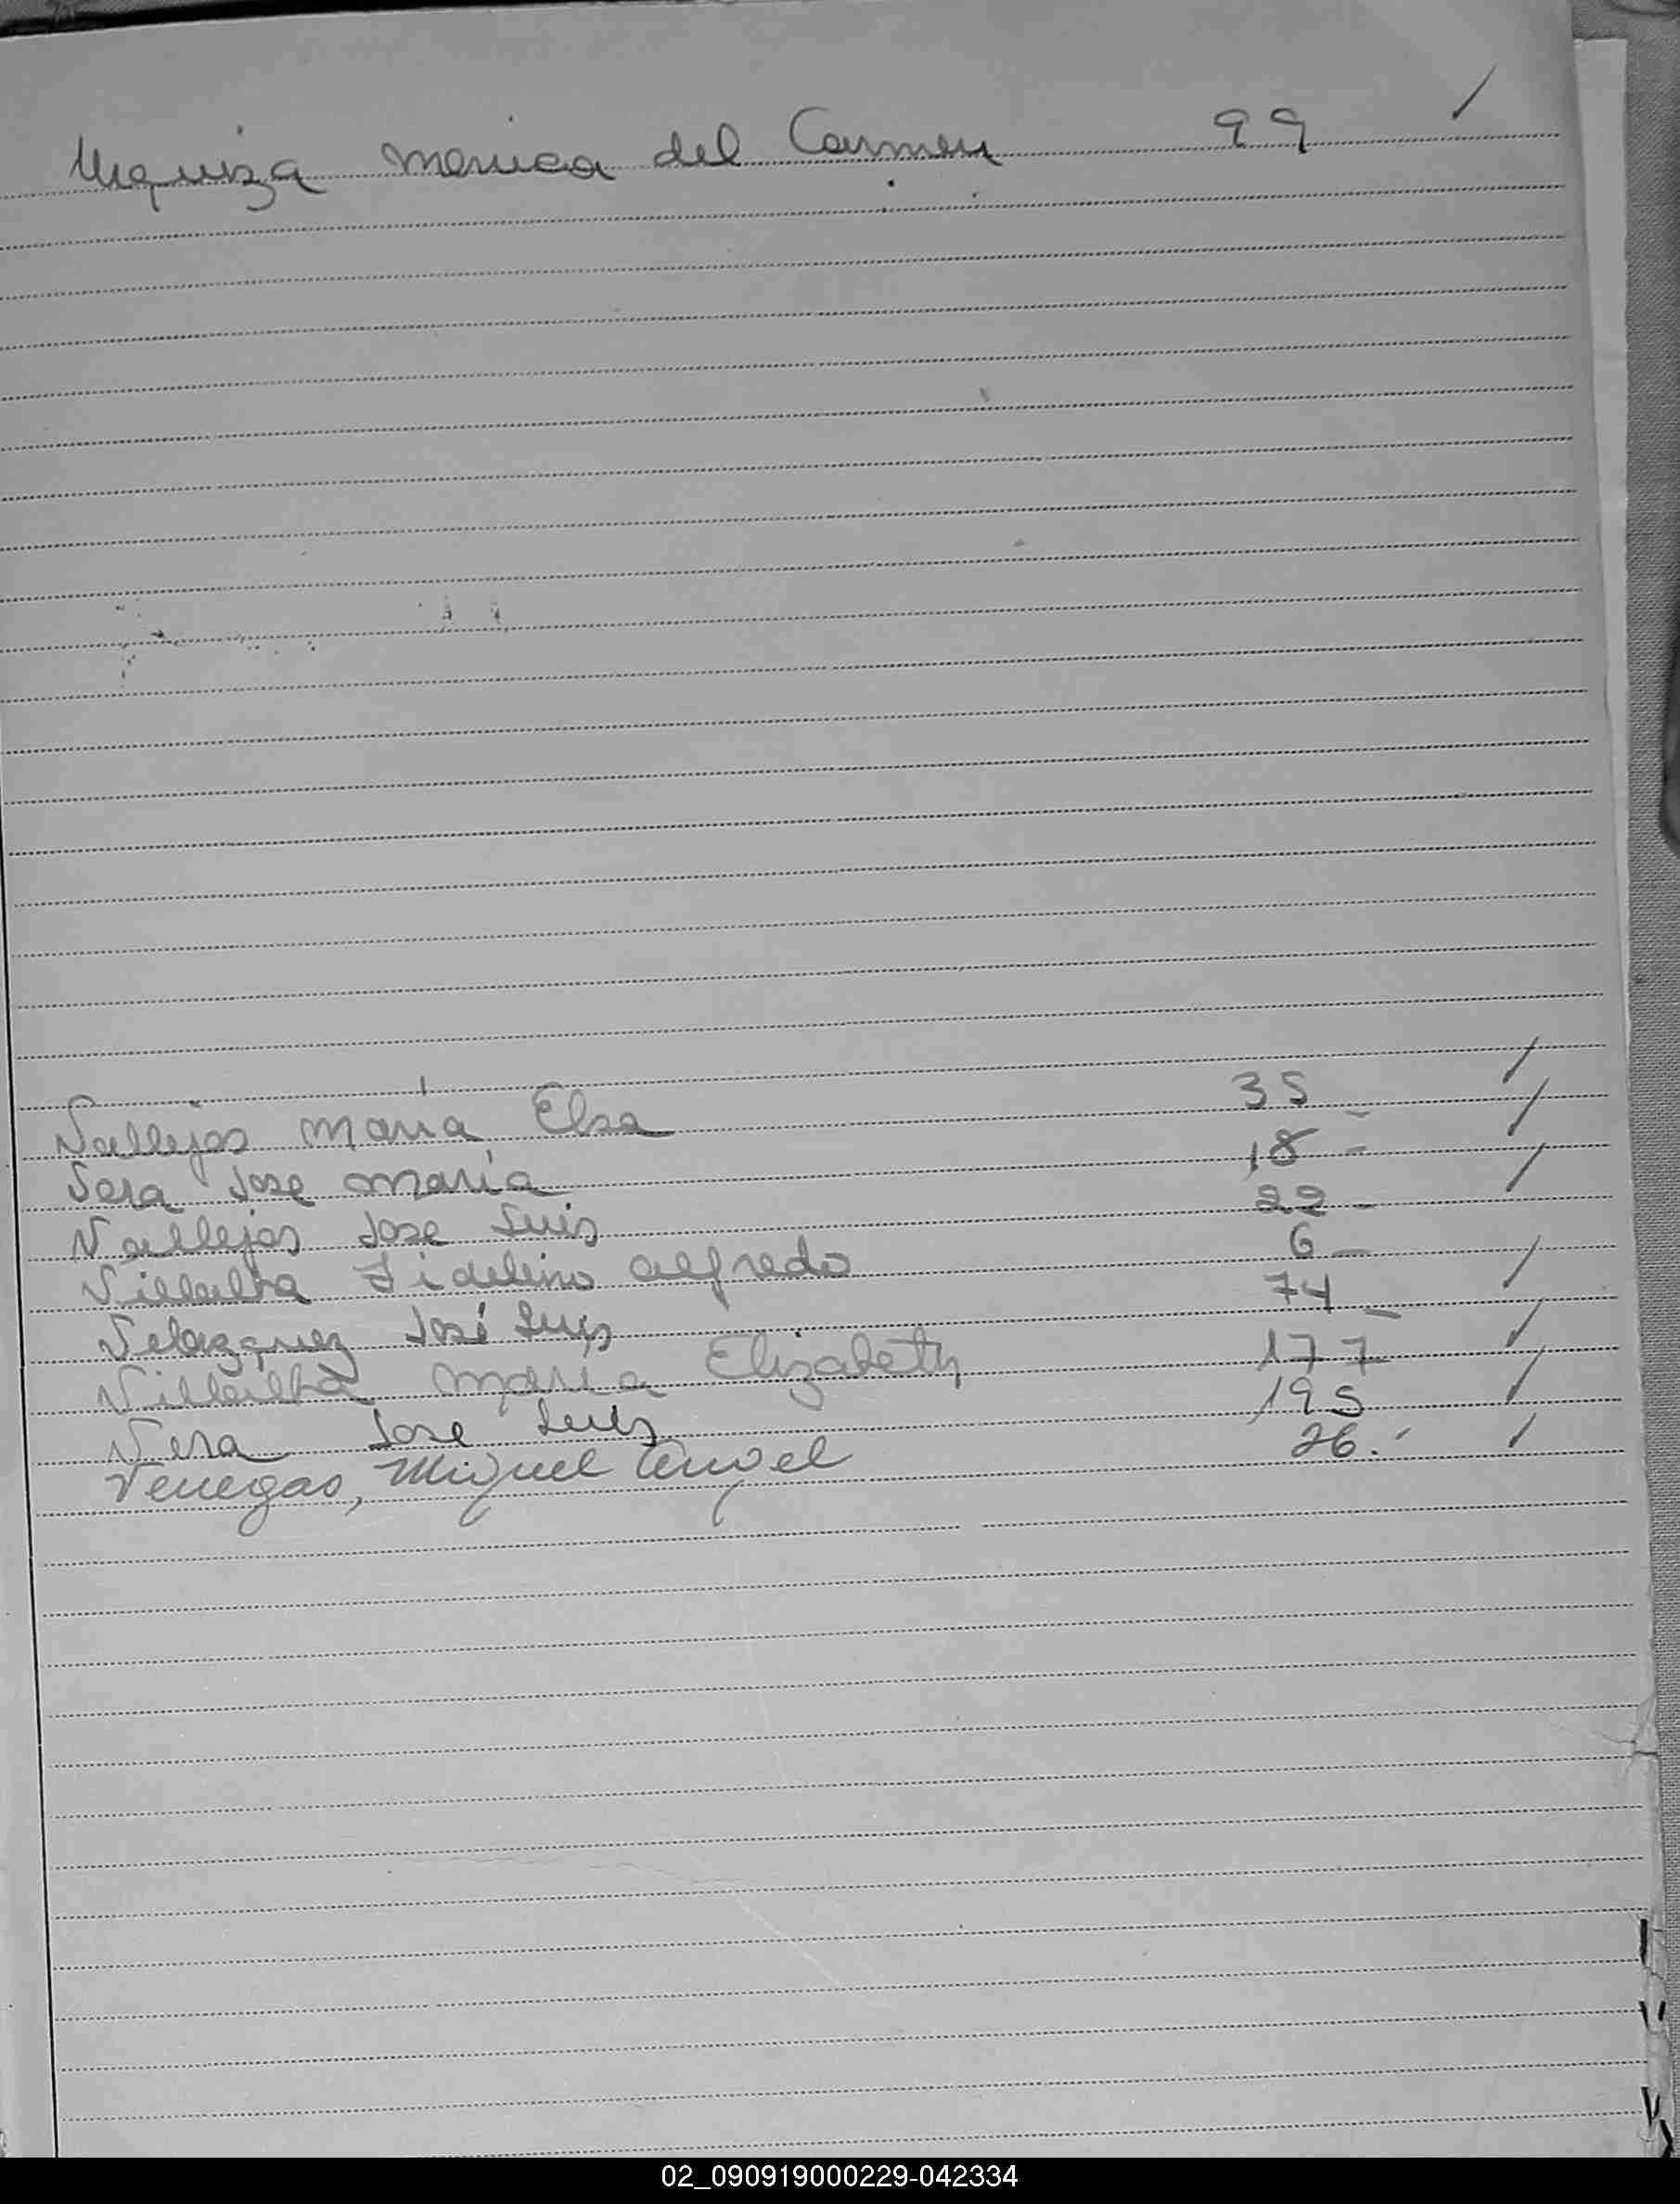 Urquiza Monica del Carmen 99 /
Vallejos María Elsa 35 - /
Vera Jose Maria 18 - /
Vallejos Jose Luis 22 - /
Villalba Fidelino Alfredo 6 -
Velazquez José Luis 74 - /
Villalba Maria Elizabeth 177 /
Vera Jose Luis 195 /
Venegas, Miguel Angel 26. /
02_090919000229-042334